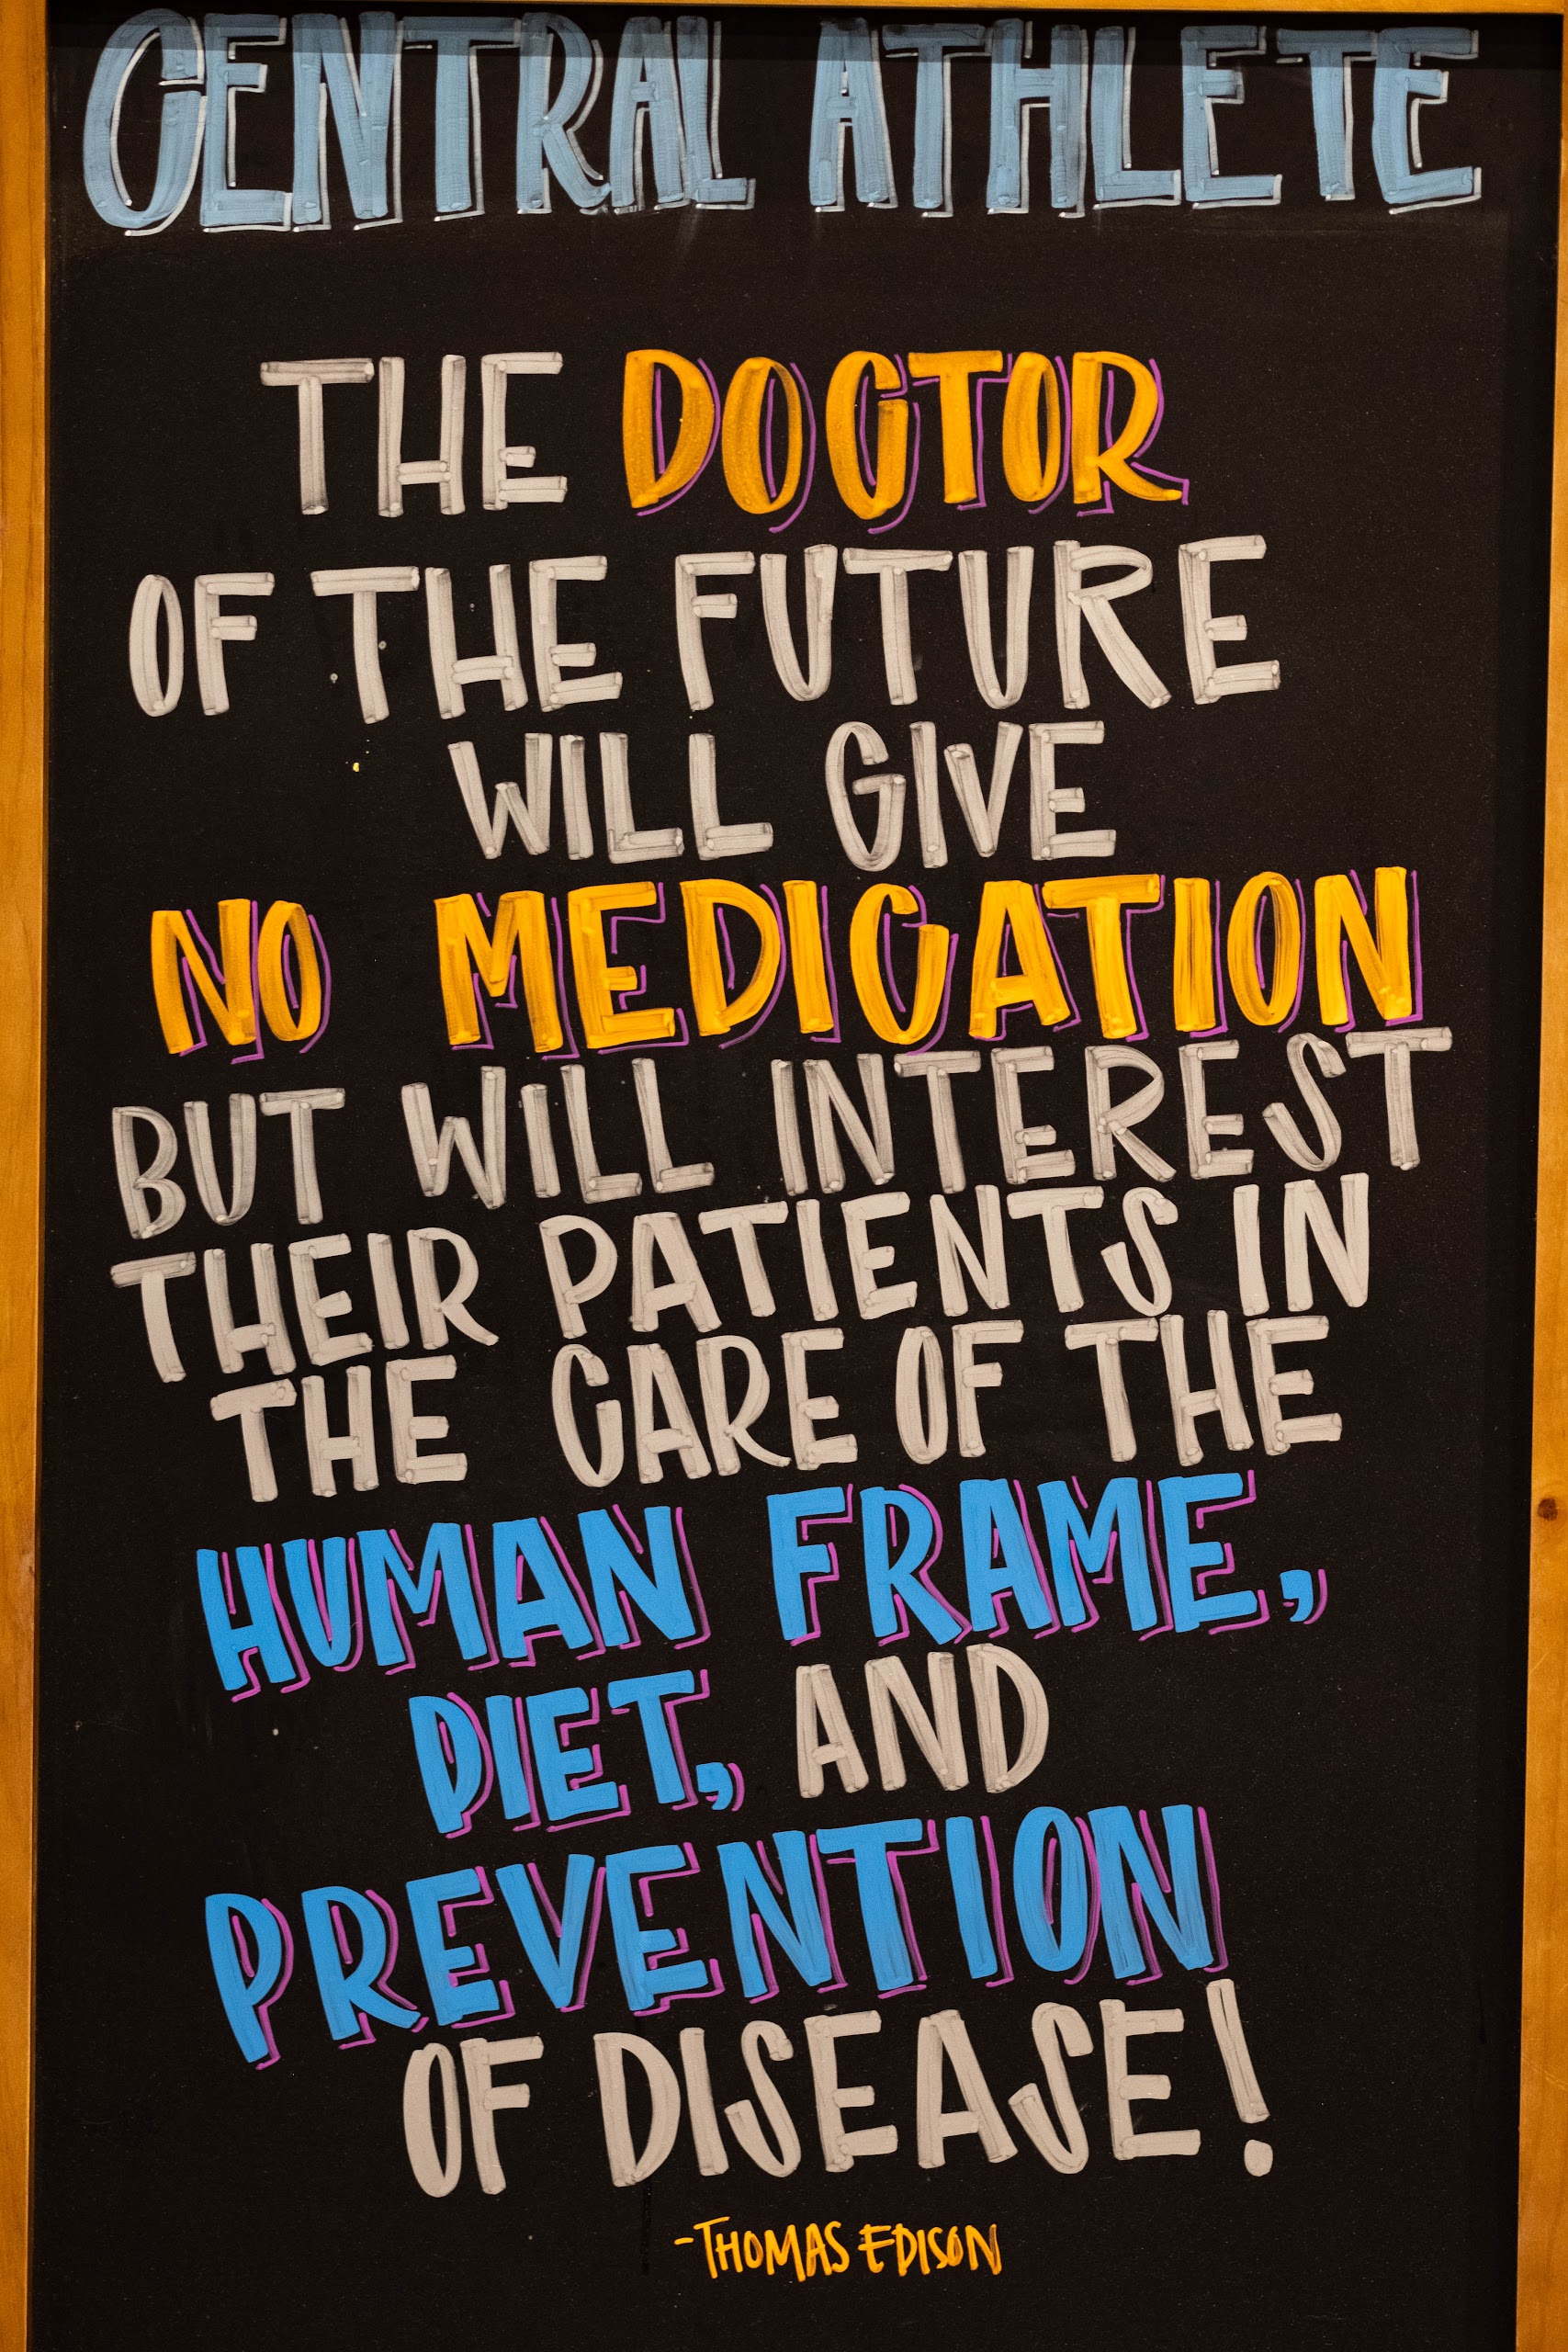 CENTRAL ATHLETE
THE DOCTOR
OF THE FUTURE
WILL GIVE
NO MEDICATION
BUT WILL INTEREST
THEIR PATIENTS IN
THE CARE OF THE
HUMAN FRAME,
DIET, AND
PREVENTION
OF DISEASE!
-THOMAS EDISON